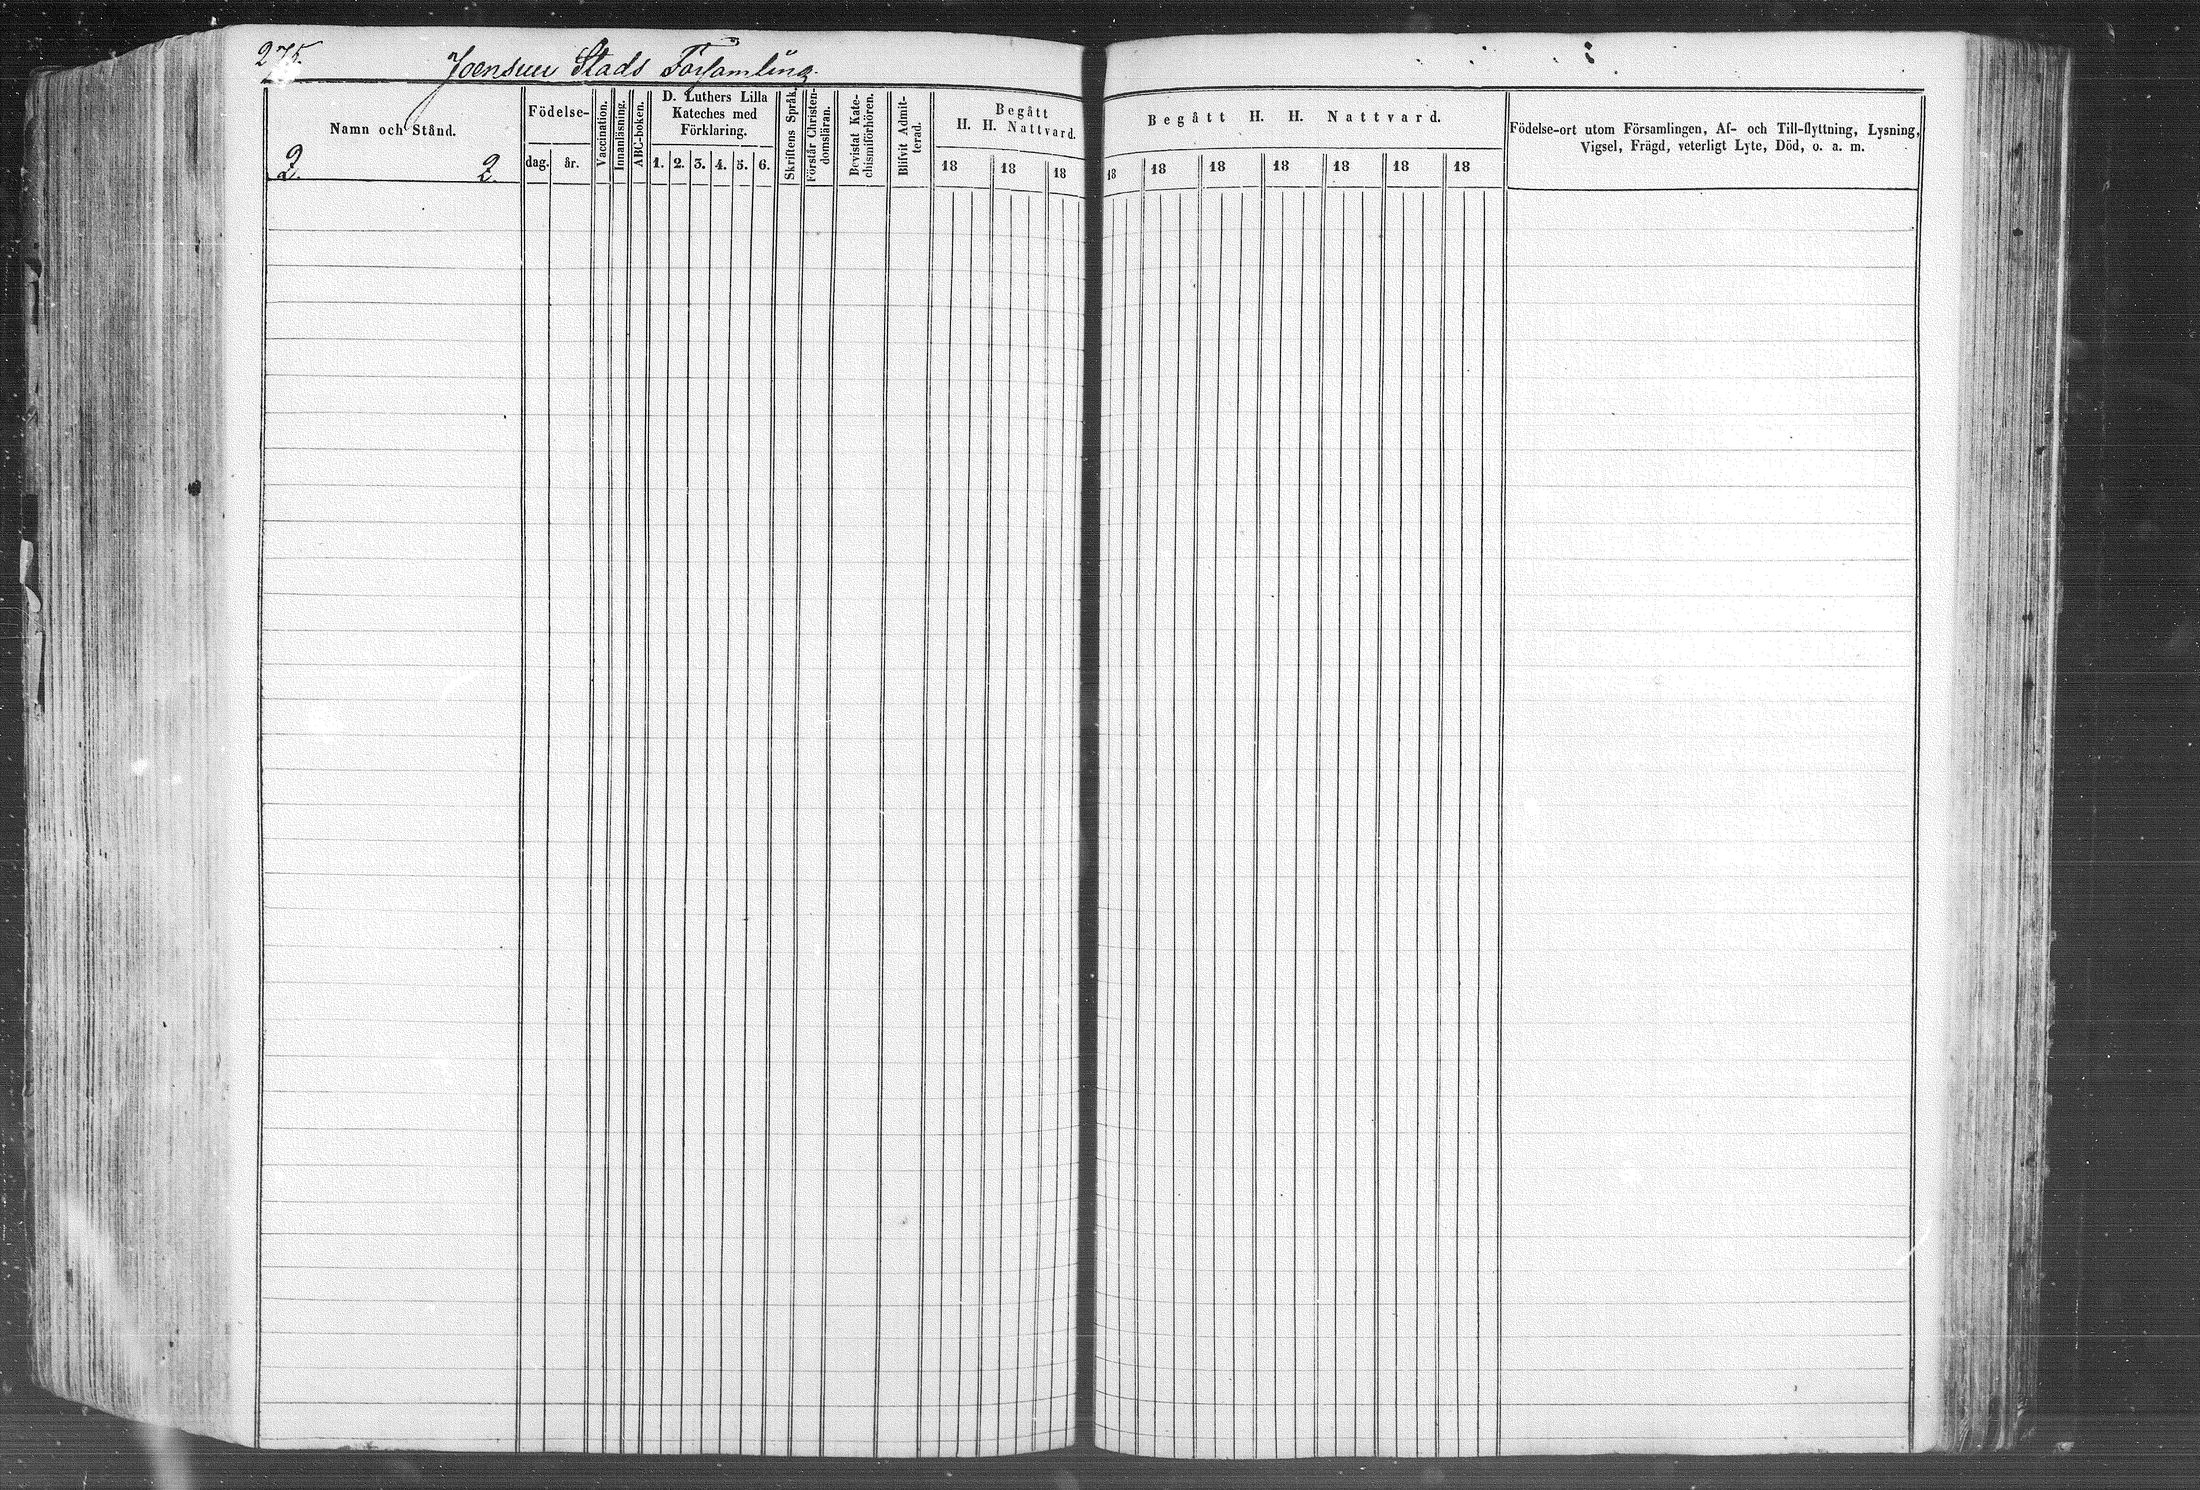 275.
Joensuu Stads Församling.
Namn och Stånd.
2. 2.
Födelse-
dag. år.
Vaccination.
Innanläsning.
ABC-boken.
D. Luthers Lilla
Kateches med
Förklaring.
1. 2. 3. 4. 5. 6.
Skriftens Språk.
Förstår Christen-
domsläran.
Bevistat Kate-
chismiförhören.
Blifvit Admit-
terad.
Begått
H. H. Nattvard.
18 18 18
Begått H. H. Nattvard.
18 18 18 18 18 18 18
Födelse-ort utom Församlingen, Af- och Till-flyttning, Lysning,
Vigsel, Frägd, veterligt Lyte, Död, o. a. m.